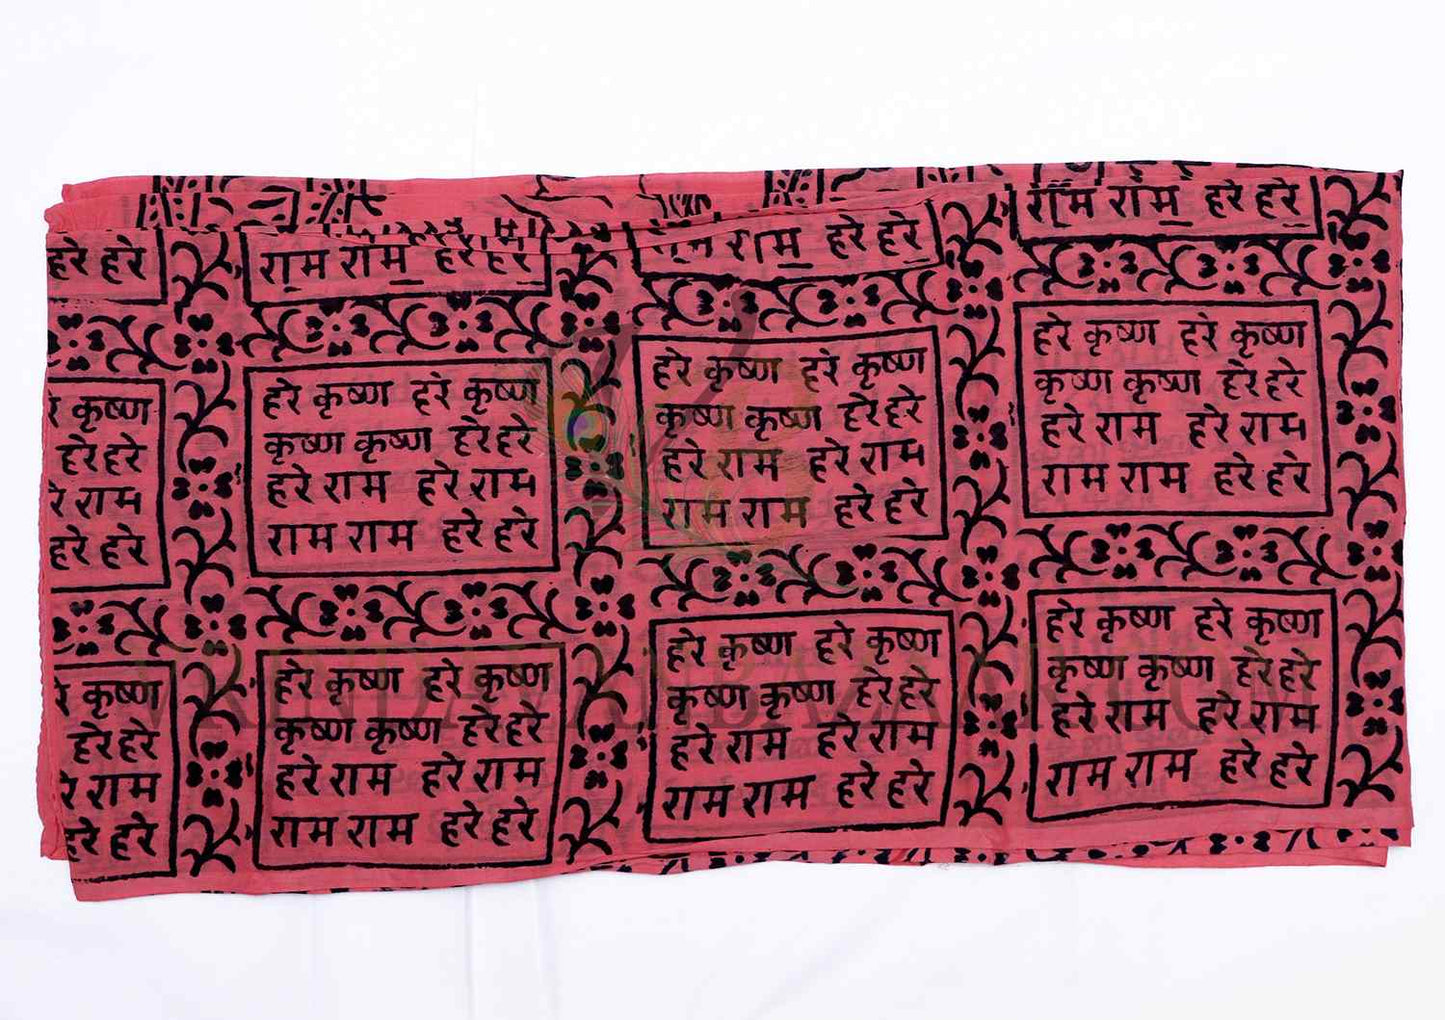 हरे हरे
राम राम हरे हरे
राम राम हरे हरे
राम राम हरे हरे
कृष्ण
हरे हरे
राम
हरे हरे
हरे कृष्ण हरे कृष्ण
कृष्ण कृष्ण हरे हरे
हरे राम हरे राम
राम राम हरे हरे
हरे कृष्ण हरे कृष्ण
कृष्ण कृष्ण हरे हरे
हरे राम हरे राम
राम राम हरे हरे
हरे कृष्ण हरे कृष्ण
कृष्ण कृष्ण हरे हरे
हरे राम हरे राम
राम राम हरे हरे
कृष्ण
हरे हरे
राम
हरे हरे
हरे कृष्ण हरे कृष्ण
कृष्ण कृष्ण हरे हरे
हरे राम हरे राम
राम राम हरे हरे
हरे कृष्ण हरे कृष्ण
कृष्ण कृष्ण हरे हरे
हरे राम हरे राम
राम राम हरे हरे
हरे कृष्ण हरे कृष्ण
कृष्ण कृष्ण हरे हरे
हरे राम हरे राम
राम राम हरे हरे